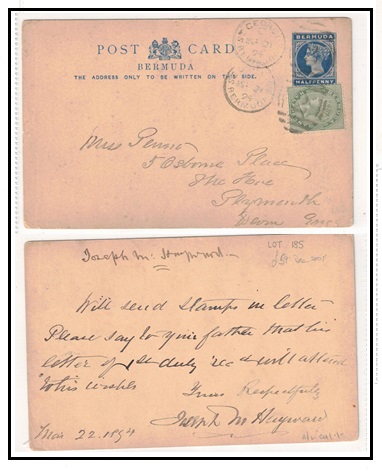 POST CARD
BERMUDA
THE ADDRESS ONLY TO BE WRITTEN ON THIS SIDE.
BERMUDA
HALFPENNY
Miss Penno
5 Osborne Place
The Hoe
Plymouth
Devon
Joseph M. Hayward
LOT 185
Will send stamps in letter
Please say to your father that his
letter of 1st duly rec'd & will attend
to his wishes
Yours Respectfully
Joseph M Hayward
Mar 22. 1894